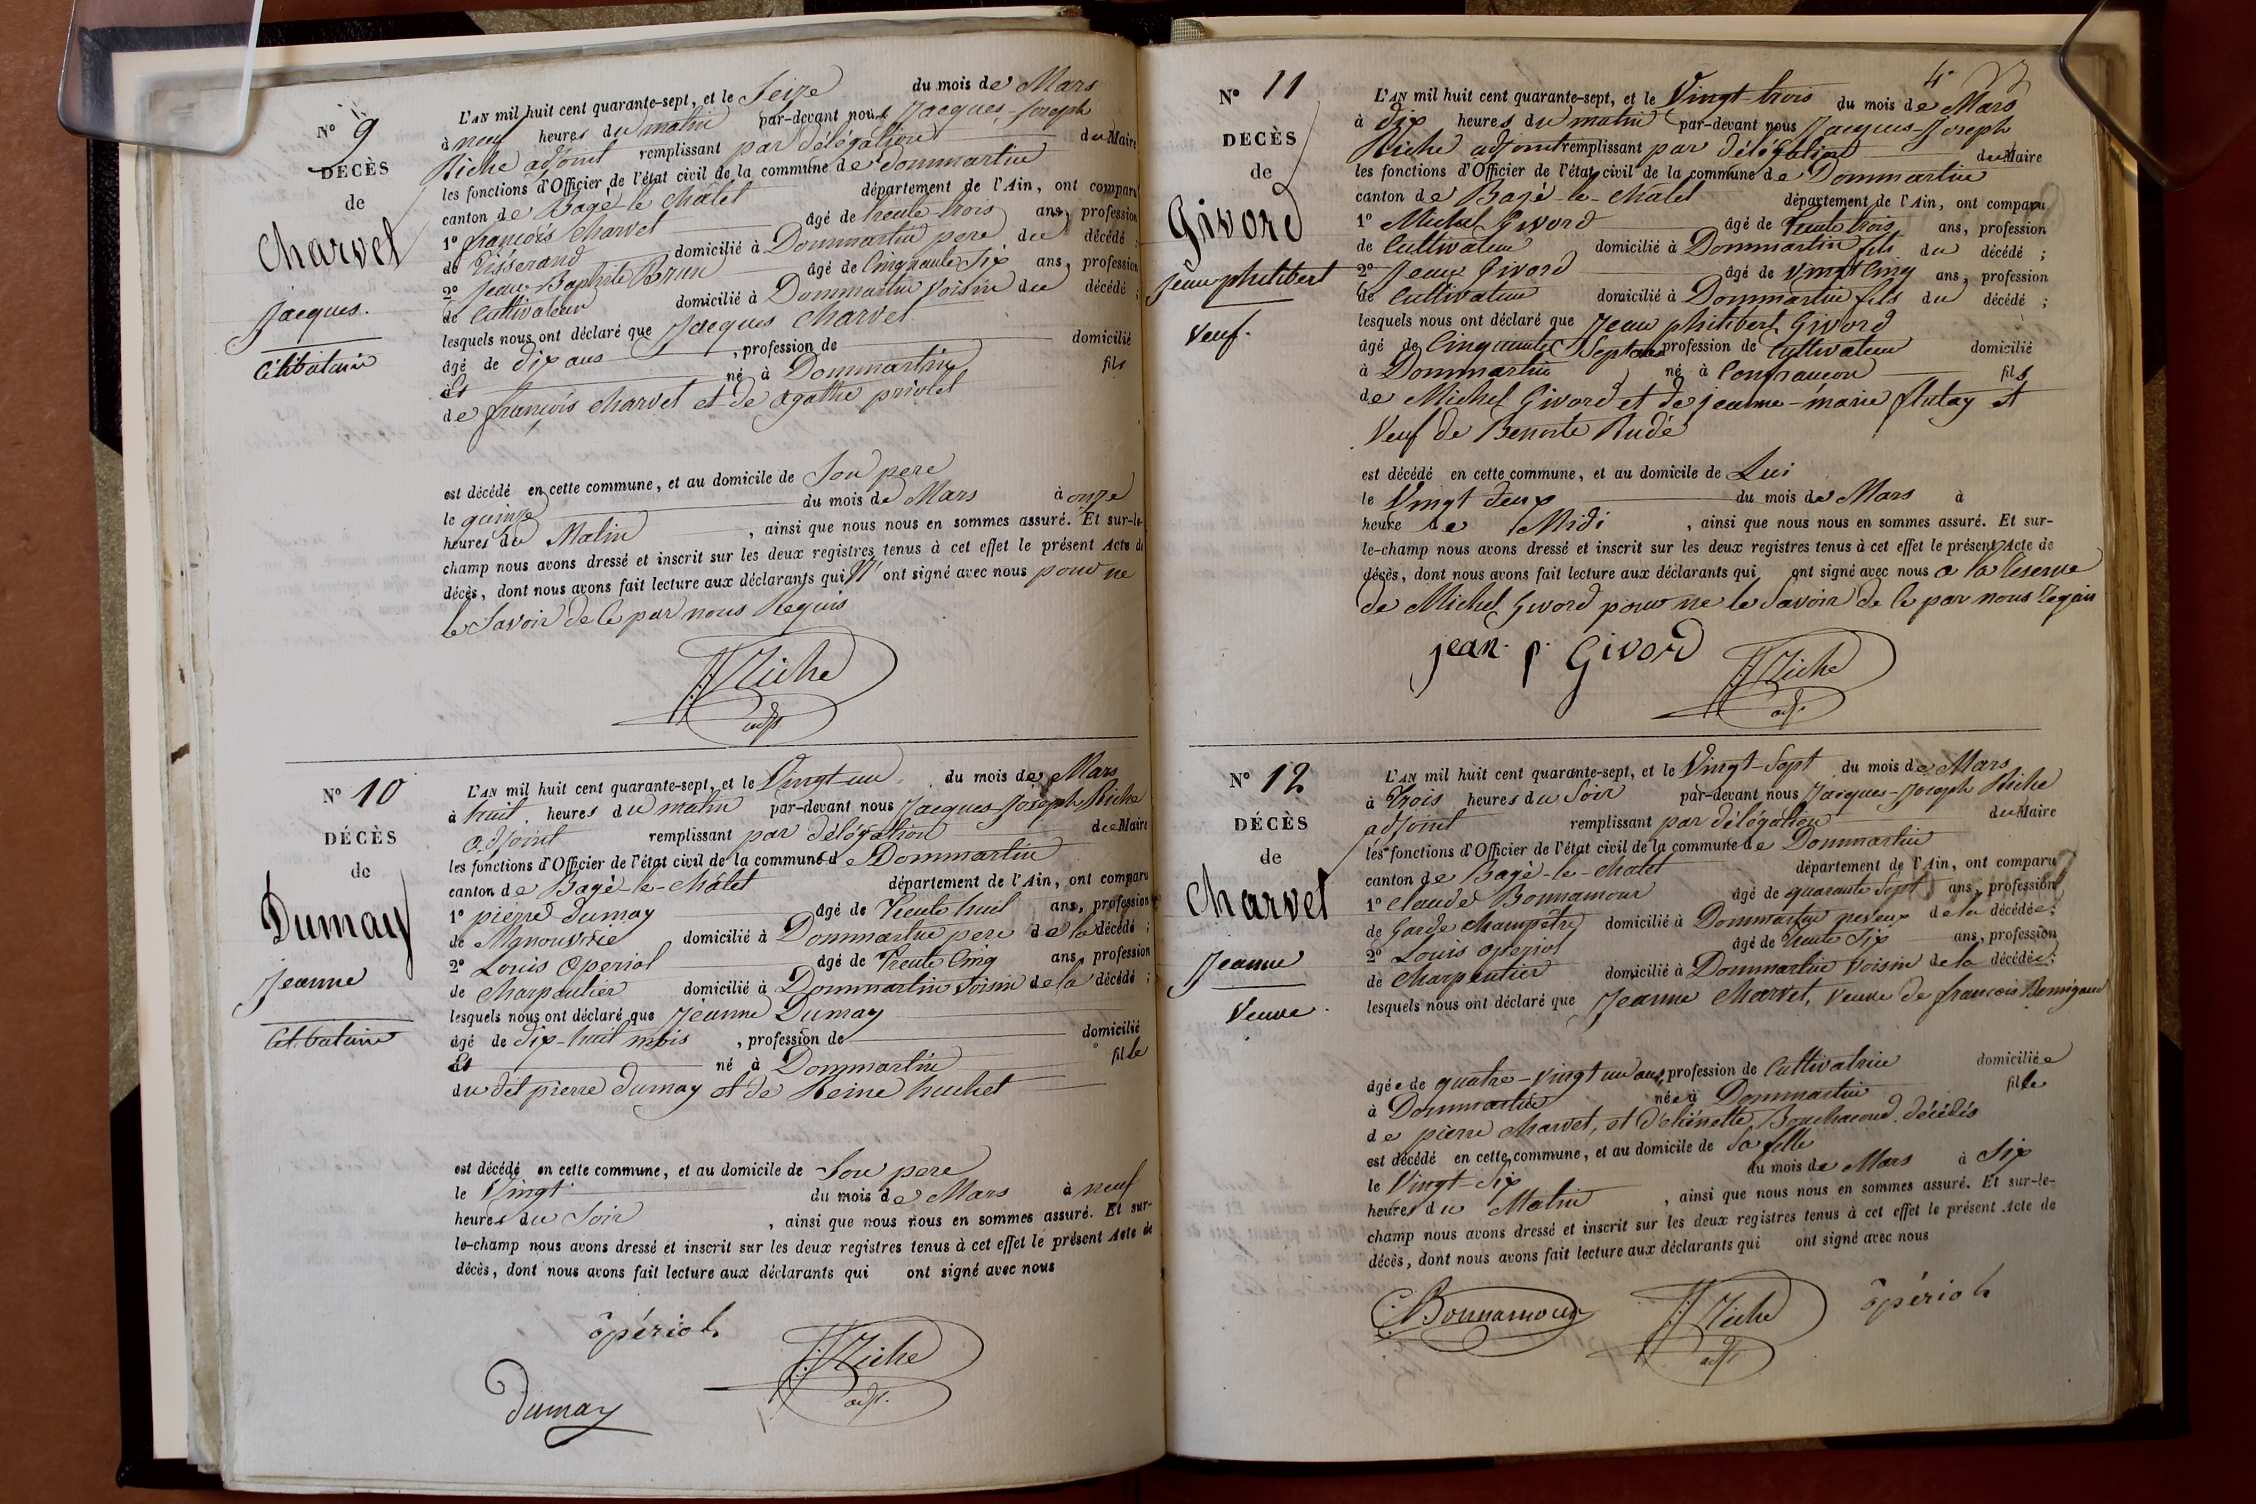 N° 9
DECÈS
de
Charvet
Jacques.
Célibataire
L'AN mil huit cent quarante-sept, et le Seize du mois de Mars
à neuf heures du matin par-devant nous Jacques-Joseph
Riche adjoint remplissant par délégation du Maire
les fonctions d'Officier de l'état civil de la commune de Dommartin
canton de Bagé-le-Châtel département de l'Ain, ont comparu
1° françois Charvet âgé de trente trois ans, profession
de Tisserand domicilié à Dommartin pere du décédé ;
2° Jean Baptiste Brun âgé de Cinquante Six ans, profession
de Cultivateur domicilié à Dommartin Voisin du décédé ;
lesquels nous ont déclaré que Jacques Charvet
âgé de dix ans , profession de domicilié
Et né à Dommartin fils
de françois Charvet et de agathe priolet
est décédé en cette commune, et au domicile de Son pere
le quinze du mois de Mars à onze
heures du Matin , ainsi que nous nous en sommes assuré. Et sur-le-
champ nous avons dressé et inscrit sur les deux registres tenus à cet effet le présent Acte de
décès, dont nous avons fait lecture aux déclarants qui N' ont signé avec nous pour ne
le Savoir de Ce par nous Requis
JJ Riche
adj.
N° 10
DÉCÈS
de
Dumay
Jeanne
Célibataire
L'AN mil huit cent quarante-sept, et le Vingt un du mois de Mars
à huit heures du matin par-devant nous Jacques-Joseph Riche
adjoint remplissant par délégation du Maire
les fonctions d'Officier de l'état civil de la commune de Dommartin
canton de Bagé-le-Châtel département de l'Ain, ont comparu
1° pierre dumay âgé de Trente huit ans, profession
de Manouvrie domicilié à Dommartin pere de la décédé ;
2° Louis Operiol âgé de Trente Cinq ans, profession
de Charpentier domicilié à Dommartin Voisin de la décédé ;
lesquels nous ont déclaré que Jeanne Dumay
âgé de dix-huit mois , profession de domicilié
Et né à Dommartin fille
du dit pierre dumay et de Reine huchet
est décédé en cette commune, et au domicile de Son pere
le Vingt du mois de Mars à neuf
heures du Soir , ainsi que nous nous en sommes assuré. Et sur-
le-champ nous avons dressé et inscrit sur les deux registres tenus à cet effet le présent Acte de
décès, dont nous avons fait lecture aux déclarants qui ont signé avec nous
ôpériol
JJ Riche
adj.
dumay
4
N° 11
DECÈS
de
Givord
Jean philibert
Veuf.
L'AN mil huit cent quarante-sept, et le Vingt-trois du mois de Mars
à dix heures du matin par-devant nous Jacques-Joseph
Riche adjoint remplissant par délégation du Maire
les fonctions d'Officier de l'état civil de la commune de Dommartin
canton de Bagé-le-Châtel département de l'Ain, ont comparu
1° Michel Givord âgé de Trente trois ans, profession
de Cultivateur domicilié à Dommartin fils du décédé ;
2° Jean Givord âgé de Vingt Cinq ans, profession
de Cultivateur domicilié à Dommartin fils du décédé ;
lesquels nous ont déclaré que Jean philibert Givord
âgé de Cinquante Sept ans profession de Cultivateur domicilié
à Dommartin né à Confrançon fils
de Michel Givord et de jeanne-marie flutay et
Veuf de Benoite Rudé
est décédé en cette commune, et au domicile de Lui
le Vingt deux du mois de Mars à
heure de Midi , ainsi que nous nous en sommes assuré. Et sur-
le-champ nous avons dressé et inscrit sur les deux registres tenus à cet effet le présent Acte de
décès, dont nous avons fait lecture aux déclarants qui ont signé avec nous a la Reserve
de Michel Givord pour ne le Savoir de Ce par nous Requis
jean. p. Givord
JJ Riche
adj.
N° 12
DÉCÈS
de
Charvet
Jeanne
Veuve.
L'AN mil huit cent quarante-sept, et le Vingt-Sept du mois de Mars
à Trois heures du Soir par-devant nous Jacques-Joseph Riche
adjoint remplissant par délégation du Maire
les fonctions d'Officier de l'état civil de la commune de Dommartin
canton de Bagé-le-Chatel département de l'Ain, ont comparu
1° Claude Bonnamour âgé de quarante Sept ans, profession
de Garde Champêtre domicilié à Dommartin neveux de la décédée ;
2° Louis Operiol âgé de Trente Six ans, profession
de Charpentier domicilié à Dommartin Voisin de la décédée ;
lesquels nous ont déclaré que Jeanne Charvet, Veuve de françois
âgée de quatre-Vingt un ans, profession de Cultivatrice domiciliée
à Dommartin née à Dommartin fille
de pierre Charvet, et d'etiénette Bouchacourd. décédés
est décédé en cette commune, et au domicile de Sa fille
le Vingt-Six du mois de Mars à Six
heures du Matin , ainsi que nous nous en sommes assuré. Et sur-le-
champ nous avons dressé et inscrit sur les deux registres tenus à cet effet le présent Acte de
décès, dont nous avons fait lecture aux déclarants qui ont signé avec nous
C. Bonnamour
JJ Riche
adj.
ôpériol